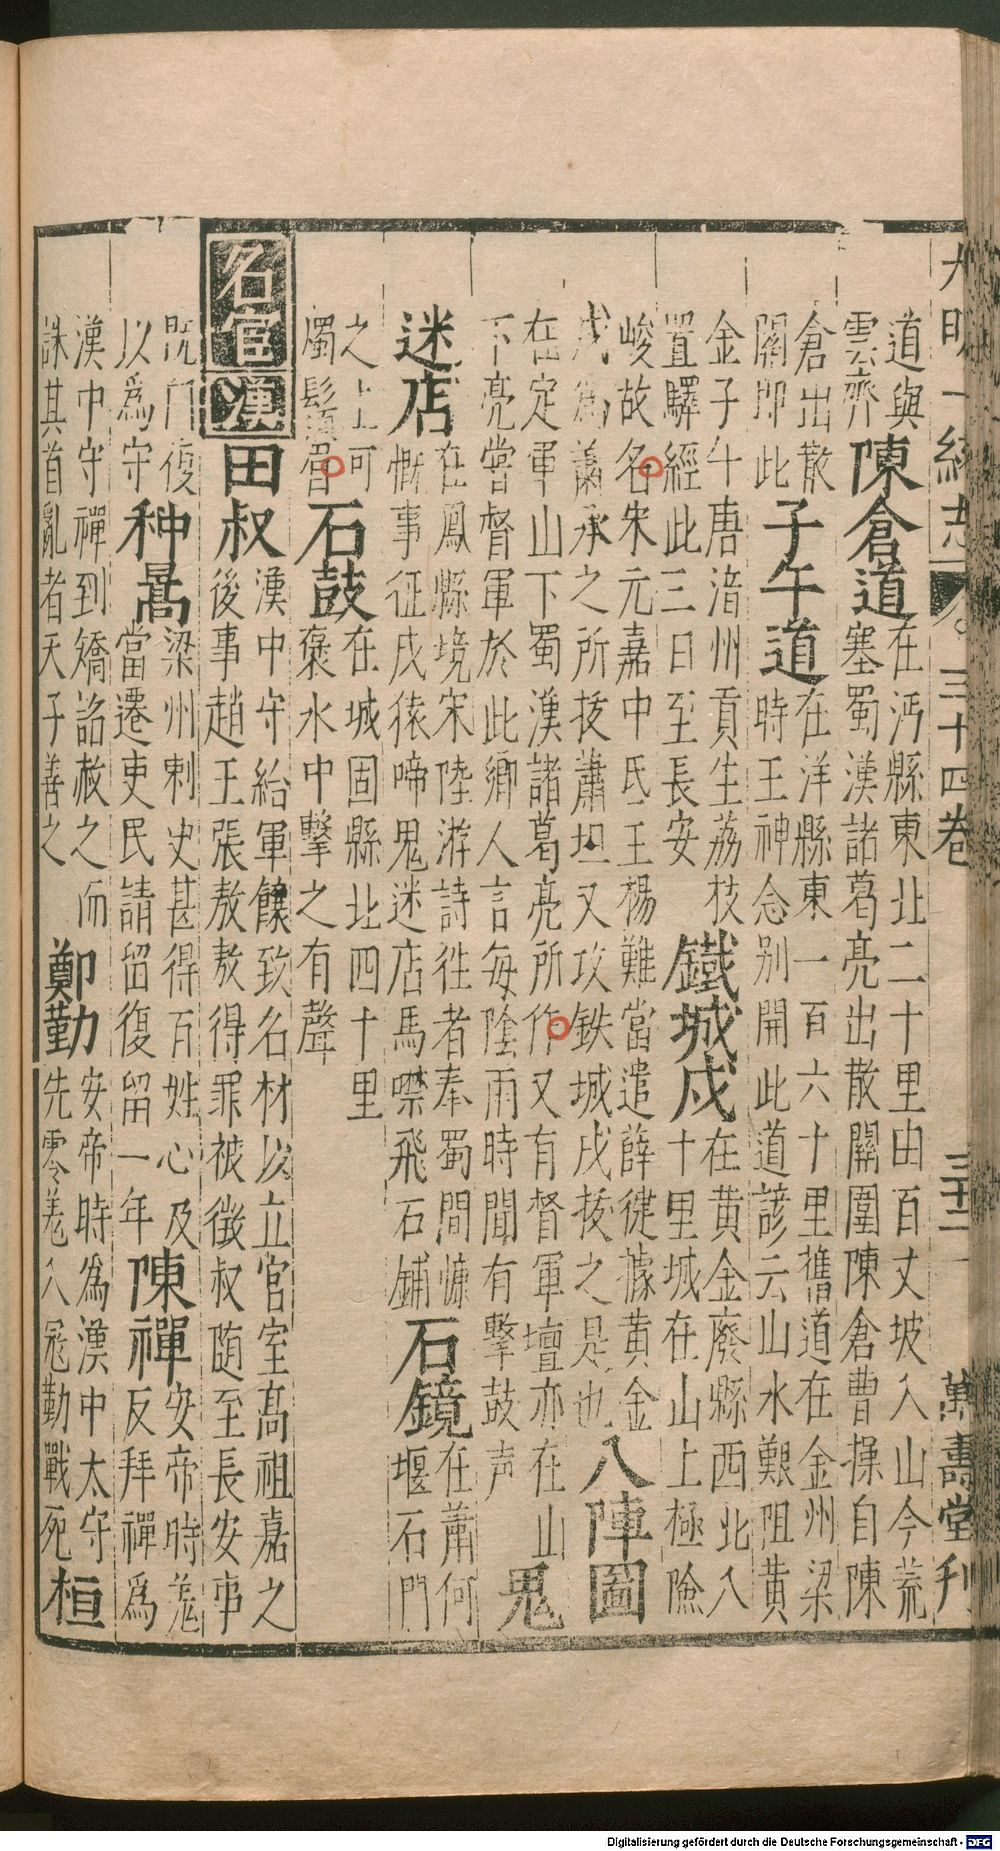 大明一統志 三十四卷 三十二 萬壽堂刋
道與
雲齊
陳倉道
在沔縣東北二十里由百丈坡入山今荒
塞蜀漢諸葛亮出散關圍陳倉曹操自陳
倉出散
關即此
子午道
在洋縣東一百六十里舊道在金州梁
時王神念别開此道諺云山水艱阻黄
金子午唐涪州貢生荔枝
置驛經此三日至長安
鐵城戍
在黄金廢縣西北八
十里城在山上極險
峻故名宋元嘉中氐王楊難當遣薛健據黄金
戍爲蕭承之所拔蕭坦又攻鉄城戍拔之是也
八陣圖
在定軍山下蜀漢諸葛亮所作又有督軍壇亦在山
下亮嘗督軍於此鄉人言每陰雨時聞有擊鼓声
鬼
迷店
在鳳縣境宋陸游詩徃者奉蜀間慷
慨事征戍猿啼鬼迷店馬噤飛石鋪
石鏡
在蕭何
堰石門
之上可
燭鬚眉
石鼓
在城固縣北四十里
褒水中擊之有聲
名官 漢
田叔
漢中守給軍餼致名材以立官室髙祖嘉之
後事趙王張敖敖得罪被徵叔随至長安事
既門復
以爲守
种暠
梁州刺史甚得百姓心及
當遷吏民請留復留一年
陳禪
安帝時羗
反拜禪爲
漢中守禪到矯詔赦之而
誅其首亂者天子善之
鄭勤
安帝時爲漢中太守
先零羗入冦勤戰死
桓
Digitalisierung gefördert durch die Deutsche Forschungsgemeinschaft - DFG